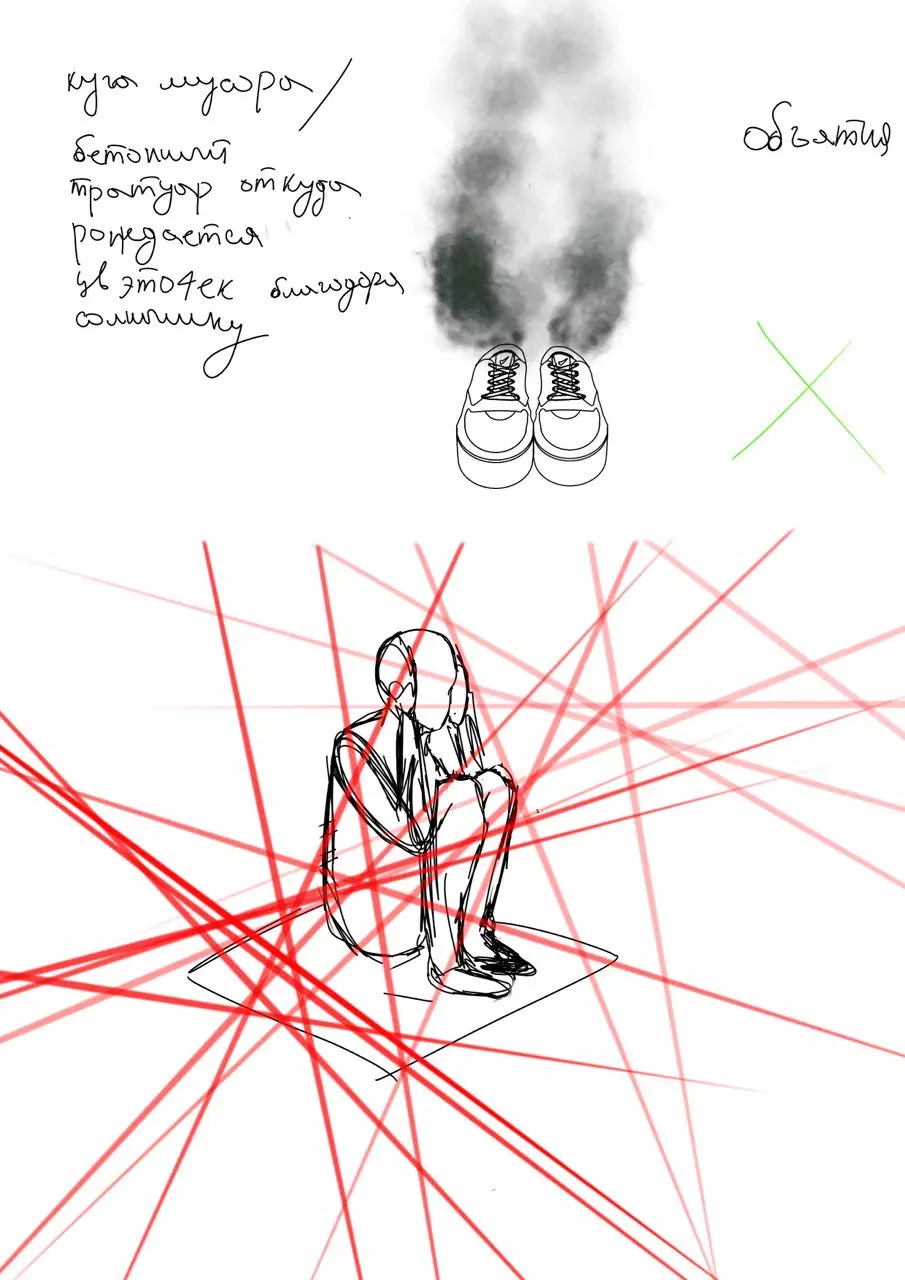 куча мусора/
бетонный
тротуар откуда
рождается
цвэточек благодаря
солнышку
Объятия